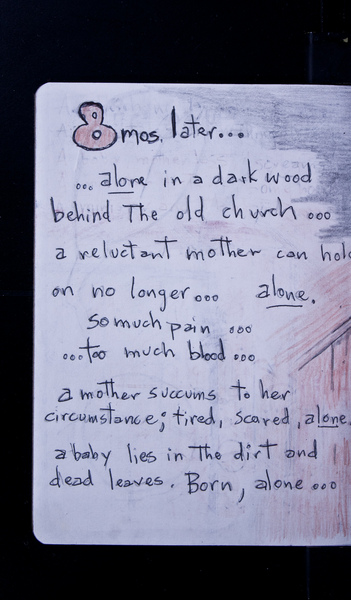 8 mos. later...
... alone in a dark wood
behind The old church ...
a reluctant mother can hold
on no longer... alone.
so much pain ...
...too much blood...
a mother succums to her
circumstance; tired, scared, alone.
a baby lies in the dirt and
dead leaves. Born, alone ...